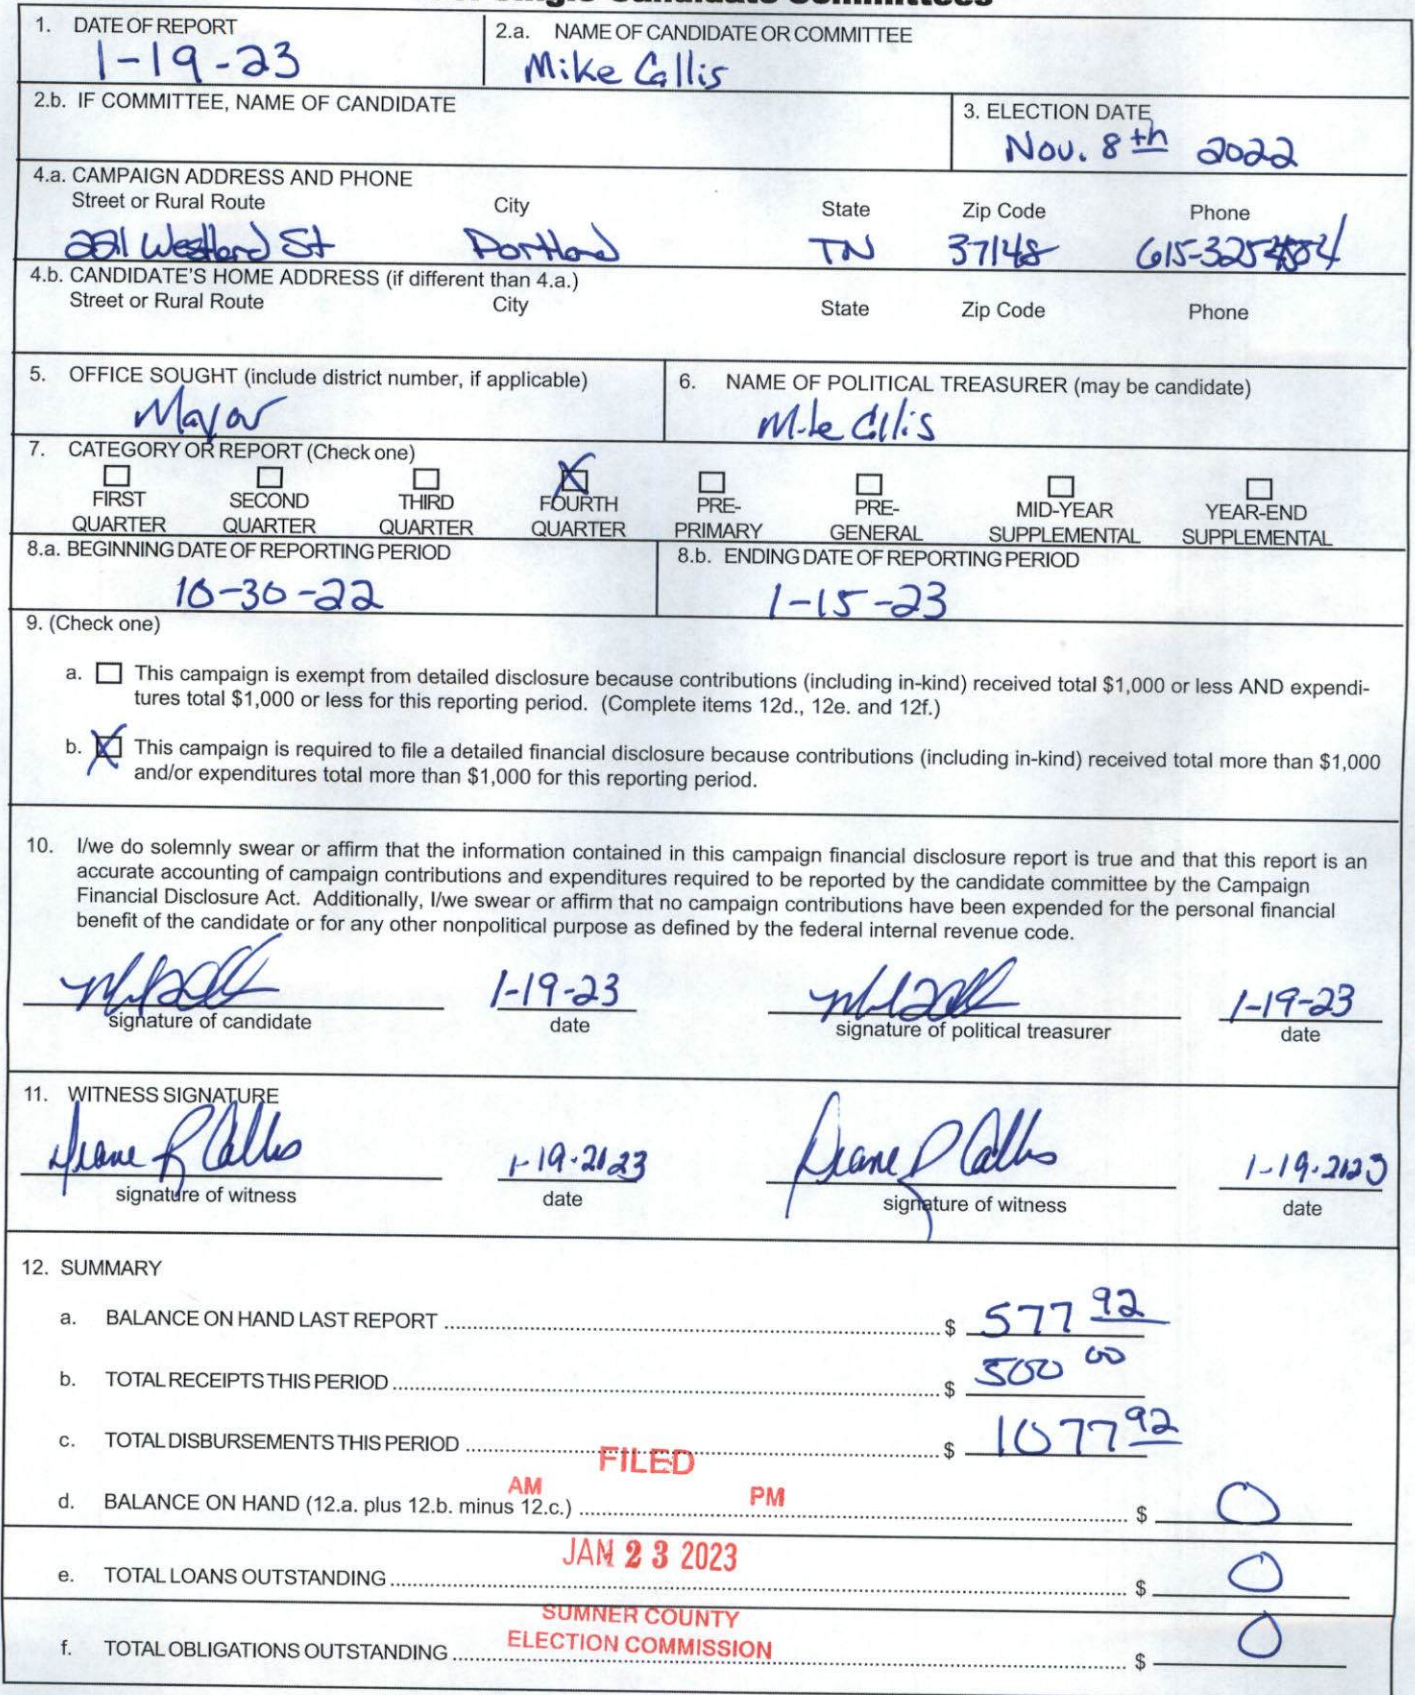 1. DATE OF REPORT
1-19-23
2.a. NAME OF CANDIDATE OR COMMITTEE
Mike Callis
2.b. IF COMMITTEE, NAME OF CANDIDATE
3. ELECTION DATE
Nov. 8th 2022
4.a. CAMPAIGN ADDRESS AND PHONE
Street or Rural Route City State Zip Code Phone
St Portland TN 37148
4.b. CANDIDATE'S HOME ADDRESS (if different than 4.a.)
Street or Rural Route City State Zip Code Phone
5. OFFICE SOUGHT (include district number, if applicable)
Mayor
6. NAME OF POLITICAL TREASURER (may be candidate)
Mike Callis
7. CATEGORY OR REPORT (Check one)
FIRST QUARTER
SECOND QUARTER
THIRD QUARTER
X FOURTH QUARTER
PRE-PRIMARY
PRE-GENERAL
MID-YEAR SUPPLEMENTAL
YEAR-END SUPPLEMENTAL
8.a. BEGINNING DATE OF REPORTING PERIOD
10-30-22
8.b. ENDING DATE OF REPORTING PERIOD
1-15-23
9. (Check one)
a. This campaign is exempt from detailed disclosure because contributions (including in-kind) received total $1,000 or less AND expendi-
tures total $1,000 or less for this reporting period. (Complete items 12d., 12e. and 12f.)
b. X This campaign is required to file a detailed financial disclosure because contributions (including in-kind) received total more than $1,000
and/or expenditures total more than $1,000 for this reporting period.
10. I/we do solemnly swear or affirm that the information contained in this campaign financial disclosure report is true and that this report is an
accurate accounting of campaign contributions and expenditures required to be reported by the candidate committee by the Campaign
Financial Disclosure Act. Additionally, I/we swear or affirm that no campaign contributions have been expended for the personal financial
benefit of the candidate or for any other nonpolitical purpose as defined by the federal internal revenue code.
1-19-23 1-19-23
signature of candidate date signature of political treasurer date
11. WITNESS SIGNATURE
Diane P Callis 1-19-2023 Diane P Callis 1-19-2023
signature of witness date signature of witness date
12. SUMMARY
a. BALANCE ON HAND LAST REPORT $ 577 92
b. TOTAL RECEIPTS THIS PERIOD $ 500 00
c. TOTAL DISBURSEMENTS THIS PERIOD $ 1077 92
FILED
AM PM
d. BALANCE ON HAND (12.a. plus 12.b. minus 12.c.) $ 0
JAN 23 2023
e. TOTAL LOANS OUTSTANDING $ 0
SUMNER COUNTY
ELECTION COMMISSION
f. TOTAL OBLIGATIONS OUTSTANDING $ 0